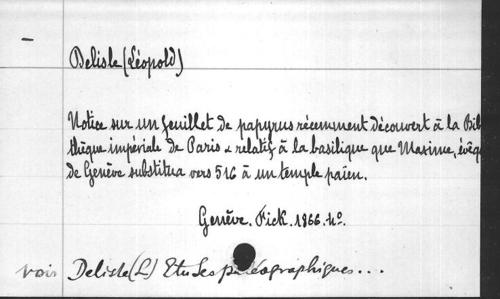 Delisle (Léopold)
Notice sur un feuillet de papyrus récemment découvert à la Bib
thèque impériale de Paris & relatif à la basilique que Maxime, évêq
de Genève substitua vers 516 à un temple païen.
Genève. Fick. 1866. 4º.
voir Delisle (L) Etudes paléographiques...